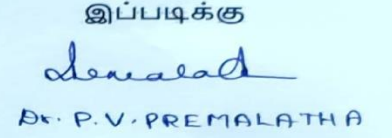 இப்படிக்கு
Dr. P. V. PREMALATHA